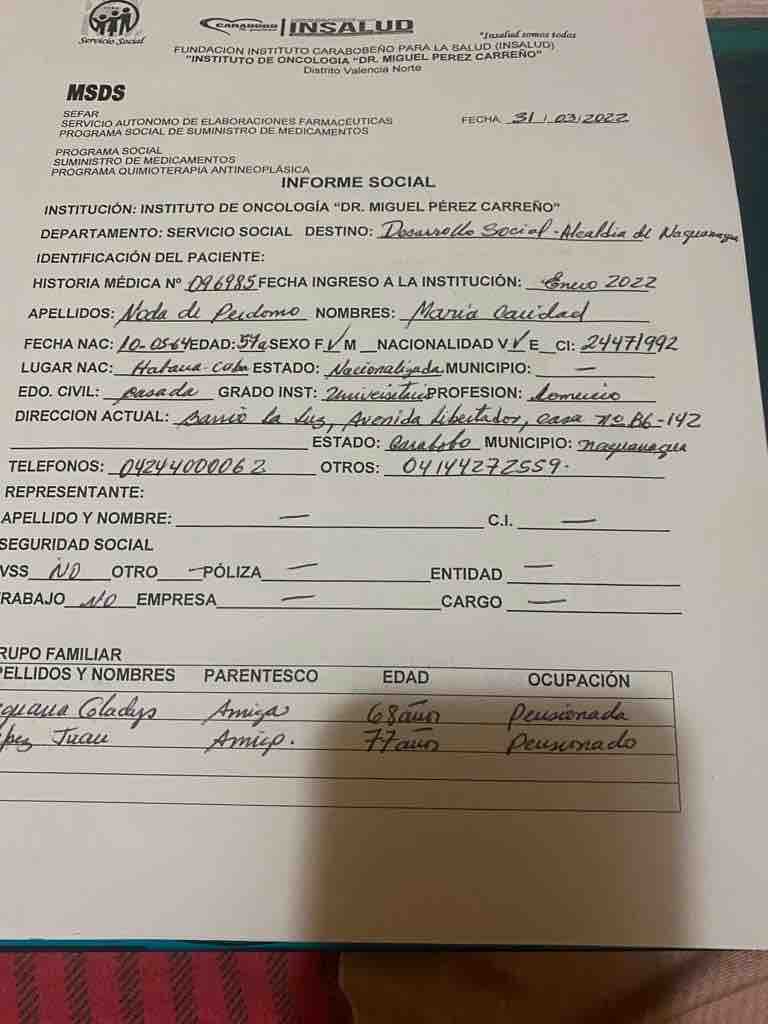 Servicio Social
CARABOBO | INSALUD
"Insalud somos todos
FUNDACION INSTITUTO CARABOBEÑO PARA LA SALUD (INSALUD)
"INSTITUTO DE ONCOLOGIA "DR. MIGUEL PEREZ CARREÑO"
Distrito Valencia Norte
MSDS
SEFAR
SERVICIO AUTONOMO DE ELABORACIONES FARMACÉUTICAS
PROGRAMA SOCIAL DE SUMINISTRO DE MEDICAMENTOS
FECHA: 31/03/2022
PROGRAMA SOCIAL
SUMINISTRO DE MEDICAMENTOS
PROGRAMA QUIMIOTERAPIA ANTINEOPLÁSICA
INFORME SOCIAL
INSTITUCIÓN: INSTITUTO DE ONCOLOGÍA "DR. MIGUEL PÉREZ CARREÑO"
DEPARTAMENTO: SERVICIO SOCIAL DESTINO: Desarrollo Social - Alcaldia de Naguanagua
IDENTIFICACIÓN DEL PACIENTE:
HISTORIA MÉDICA Nº 096985 FECHA INGRESO A LA INSTITUCIÓN: Enero 2022
APELLIDOS: Noda de Perdomo NOMBRES: Maria Caridad
FECHA NAC: 10-05-64 EDAD: 57a SEXO F √ M __ NACIONALIDAD V √ E__ CI: 24471992
LUGAR NAC: Habana-Cuba ESTADO: Nacionalizada MUNICIPIO: —
EDO. CIVIL: Casada GRADO INST: Universitario PROFESION: Comercio
DIRECCION ACTUAL: Barrio La Luz, Avenida Libertador, casa nº B6-142
ESTADO: Carabobo MUNICIPIO: Naguanagua
TELEFONOS: 04244000062 OTROS: 04144272559.
REPRESENTANTE:
APELLIDO Y NOMBRE: — C.I. —
SEGURIDAD SOCIAL
VSS NO OTRO — PÓLIZA — ENTIDAD —
RABAJO NO EMPRESA — CARGO —
RUPO FAMILIAR
PELLIDOS Y NOMBRES PARENTESCO EDAD OCUPACIÓN
Gladys Amiga 68 años Pensionada
pez Juan Amigo. 77 años Pensionado